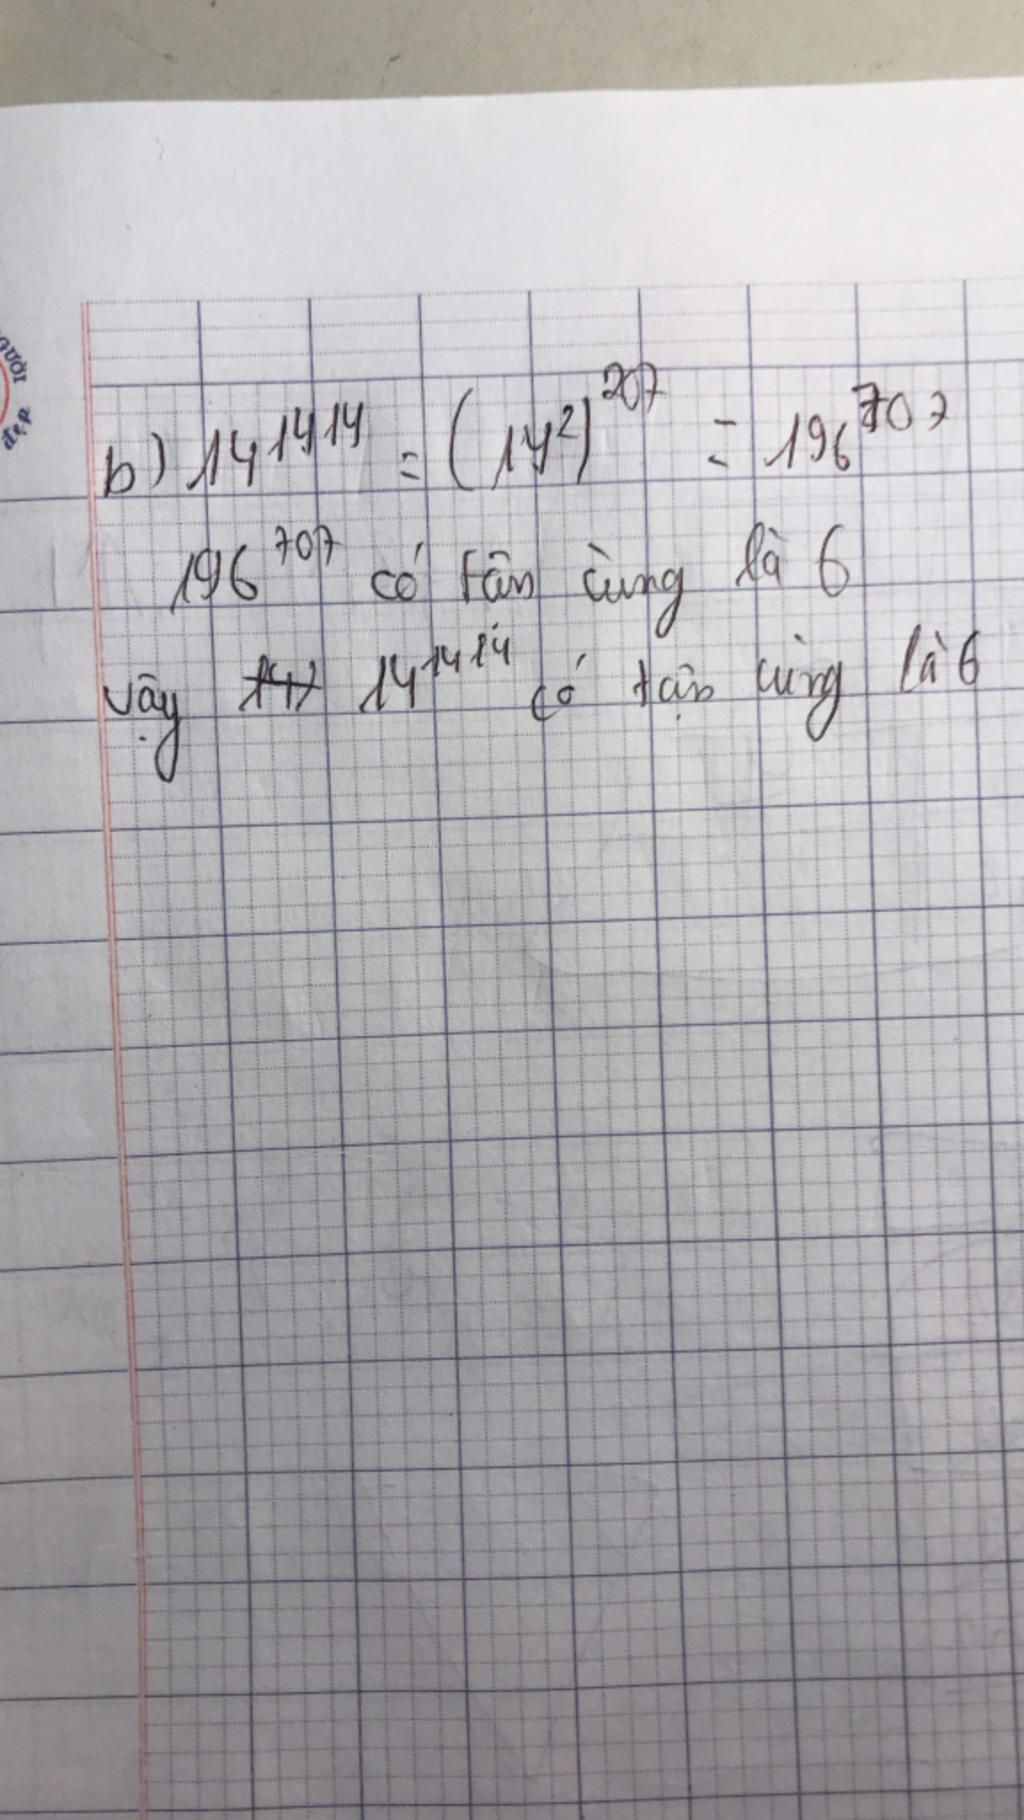 người
đẹp
b) 14^1414 = (14²)^207 = 196^707
196^707 có tân cùng là 6
vậy 14^1414 có tận cùng là 6